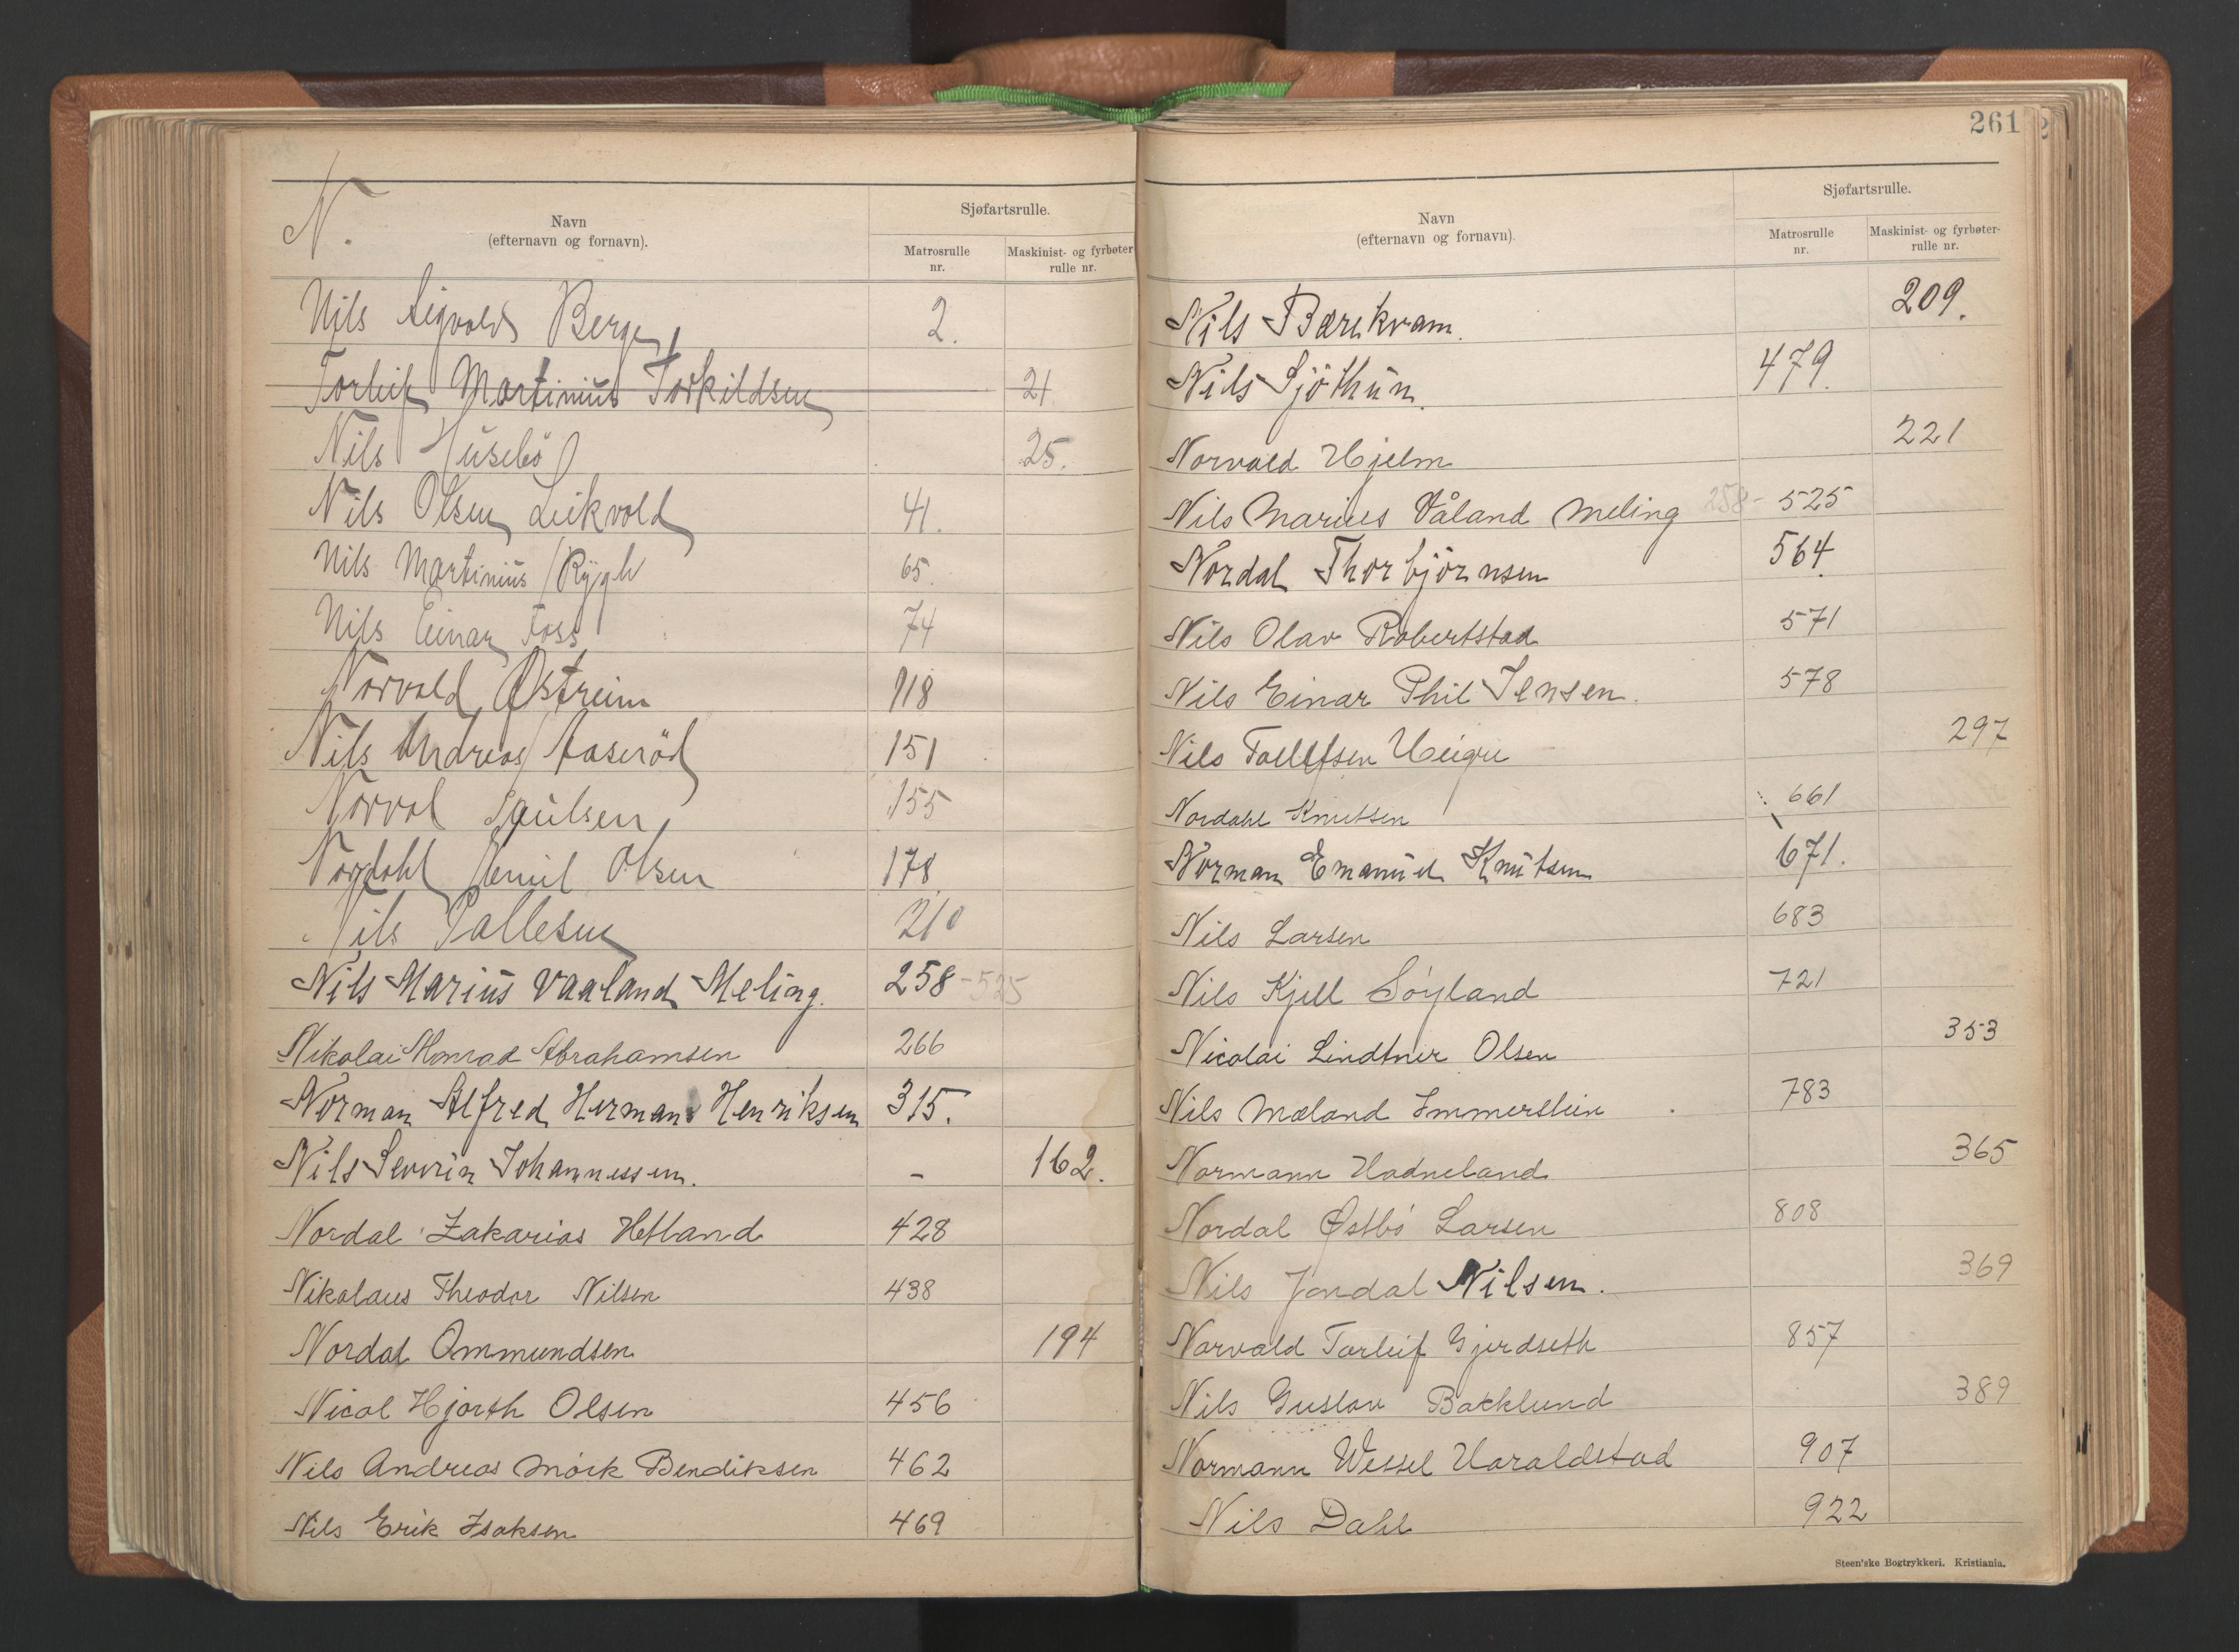 N.
Navn
(efternavn og fornavn).
Sjøfartsrulle.
Matrosrulle
nr.
Maskinist- og fyrbøter
rulle nr.
Nils Sigvald Berge 2.
Torleif Martinius Torkildsen 21
Nils Husebö 25.
Nils Olsen Leikvold 41.
Nils Martinius Rygh 65.
Nils Einar Foss 74
Norvald Østreim 118
Nils Andreas Aaseröd 151
Norval Paulsen 155
Nordahl Emil Olsen 178
Nils Pallesen 210
Nils Marius Vaaland Meling. 258 - 525
Nikolai Konrad Abrahamsen 266
Norman Alfred Herman Henriksen 315.
Nils Severin Johannessen. - 162.
Nordal Zakarias Hetland 428
Nikolaus Theodor Nilsen 438
Nordal Ommundsen 194
Nicol Hjorth Olsen 456
Nils Andreas Mörk Bendiksen 462
Nils Erik Isaksen 469
261
Navn
(efternavn og fornavn).
Sjøfartsrulle.
Matrosrulle
nr.
Maskinist- og fyrbøter-
rulle nr.
Nils Barkvam. 209.
Nils Sjöthun. 479.
Norvald Hjelm 221
Nils Marius Våland Meling 258- 525
Nordal Thorbjörnsen 564.
Nils Olav Robertstad 571
Nils Einar Phil Jensen. 578
Nils Tollefsen Heigre 297
Nordahl Knutsen 661
Norman Emanuel Knutsen 671.
Nils Larsen 683
Nils Kjell Söyland 721
Nicolai Lindtner Olsen 353
Nils Mæland Immerstein 783
Normann Hadneland 365
Nordal Østbö Larsen 808
Nils Jondal Nilsen. 369
Norvald Torleif Gjerdseth 857
Nils Gustav Backlund 389
Normann Wessel Haraldstad 907
Nils Dahl 922
Steen'ske Bogtrykkeri. Kristiania.